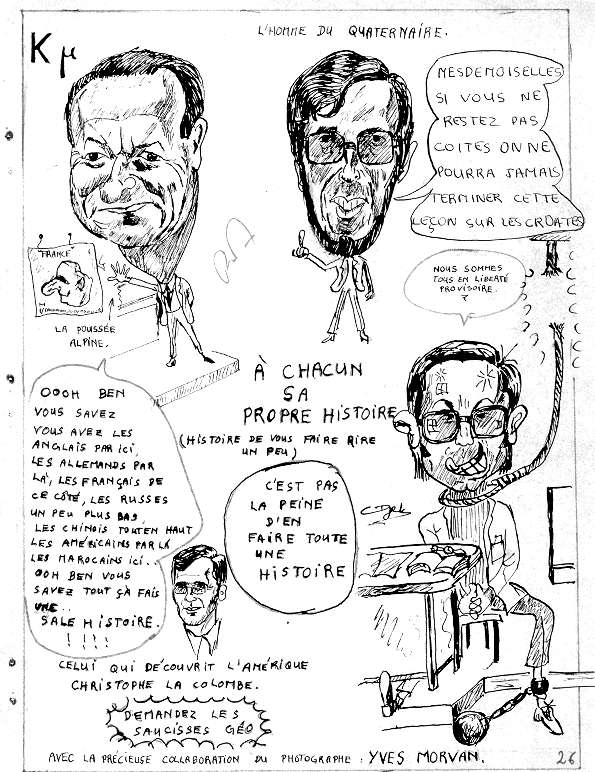 L'HOMME DU QUATERNAIRE.
Kμ
MESDEMOISELLES
SI VOUS NE
RESTEZ PAS
COITES ON NE
POURRA JAMAIS
TERMINER CETTE
LEÇON SUR LES CROATES
"FRANCE"
LA POUSSÉE
ALPINE.
NOUS SOMMES
TOUS EN LIBERTÉ
PROVISOIRE.
?
À CHACUN
SA
PROPRE HISTOIRE
(HISTOIRE DE VOUS FAIRE RIRE
UN PEU)
OOOH BEN
VOUS SAVEZ
VOUS AVEZ LES
ANGLAIS PAR ICI,
LES ALLEMANDS PAR
LÀ, LES FRANÇAIS DE
CE CÔTÉ, LES RUSSES
UN PEU PLUS BAS,
LES CHINOIS TOUT EN HAUT
LES AMÉRICAINS PAR LÀ
LES MAROCAINS ICI..
OOH BEN VOUS
SAVEZ TOUT ÇÀ FAIS
UNE..
SALE HISTOIRE.
! ! ! !
C'EST PAS
LA PEINE
D'EN
FAIRE TOUTE
UNE
HISTOIRE
CELUI QUI DÉCOUVRIT L'AMÉRIQUE
CHRISTOPHE LA COLOMBE.
DEMANDEZ LES
SAUCISSES GÉO
AVEC LA PRÉCIEUSE COLLABORATION DU PHOTOGRAPHE : YVES MORVAN.
26